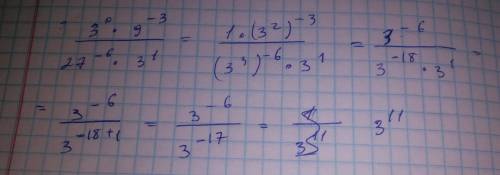 3⁰ · 9⁻³ / 27⁻⁶ · 3¹ = 1 · (3²)⁻³ / (3³)⁻⁶ · 3¹ = 3⁻⁶ / 3⁻¹⁸ · 3¹ =
= 3⁻⁶ / 3⁻¹⁸⁺¹ = 3⁻⁶ / 3⁻¹⁷ = 3¹¹